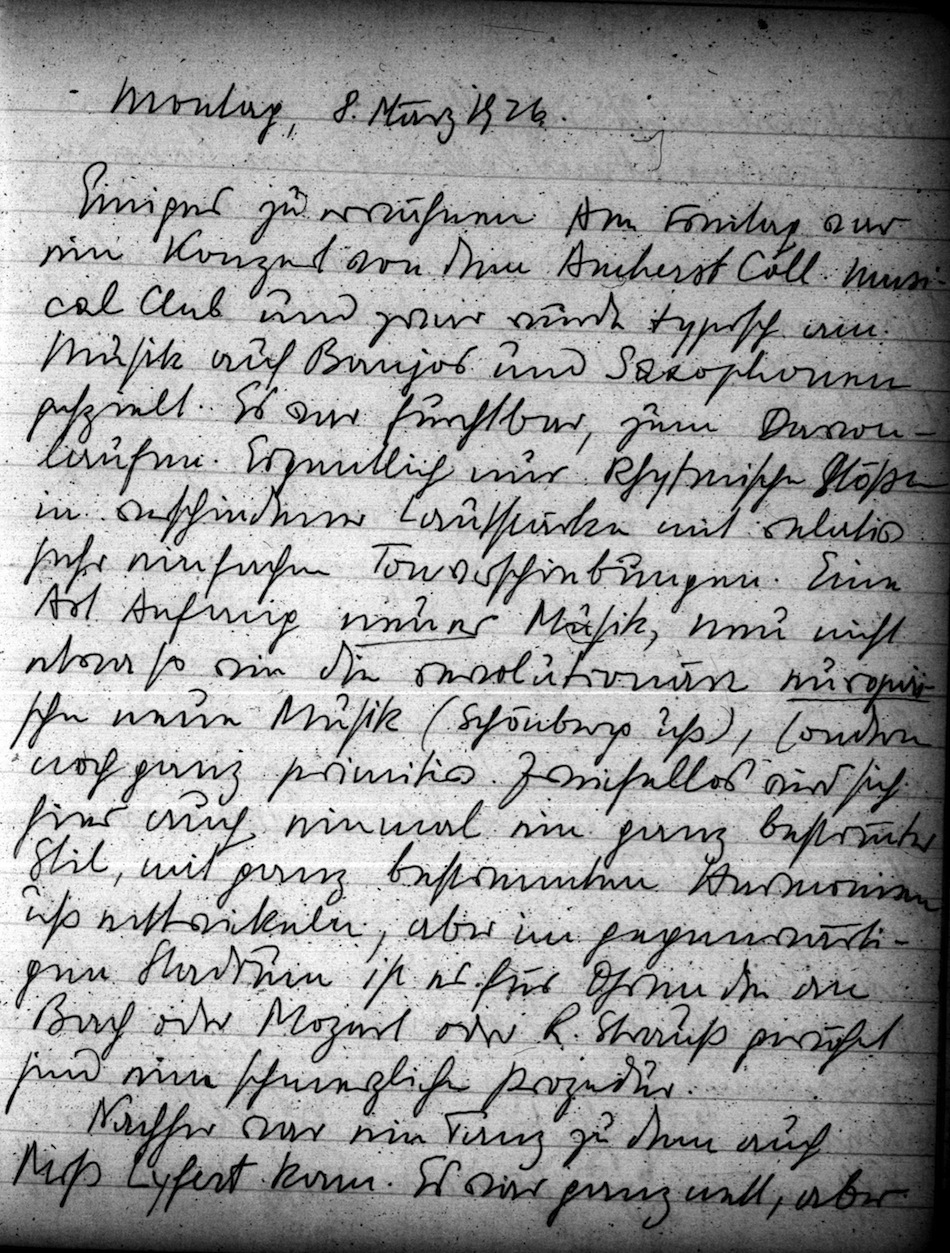 Montag, 8. März 1926.
Einiges zu erwähnen Am Freitag war
ein Konzert von dem Amherst Coll. Musi-
cal Club und zwar wurde typisch am.
Musik auf Banjos und Saxophonen
gespielt. Es war furchtbar, zum Davon-
laufen. Eigentlich nur Rhythmische Stöße
in verschiedener Lautstärke mit relativ
sehr einfachen Tonverschiebungen. Eine
Art Anfang neuer Musik, neu nicht
etwa so wie die revolutionäre europäi-
sche neue Musik (Schönberg usf), sondern
noch ganz primitiv. Zweifellos wird sich
hier auch einmal ein ganz bestimmter
Stil, mit ganz bestimmten Harmonien
usf entwickeln, aber im gegenwärti-
gen Stadium ist es für Ohren die an
Bach oder Mozart oder R. Strauß gewöhnt
sind eine schmerzliche Prozedur.
Nachher war ein Tanz zu dem auch
Miß Lyfert kam. Es war ganz nett, aber